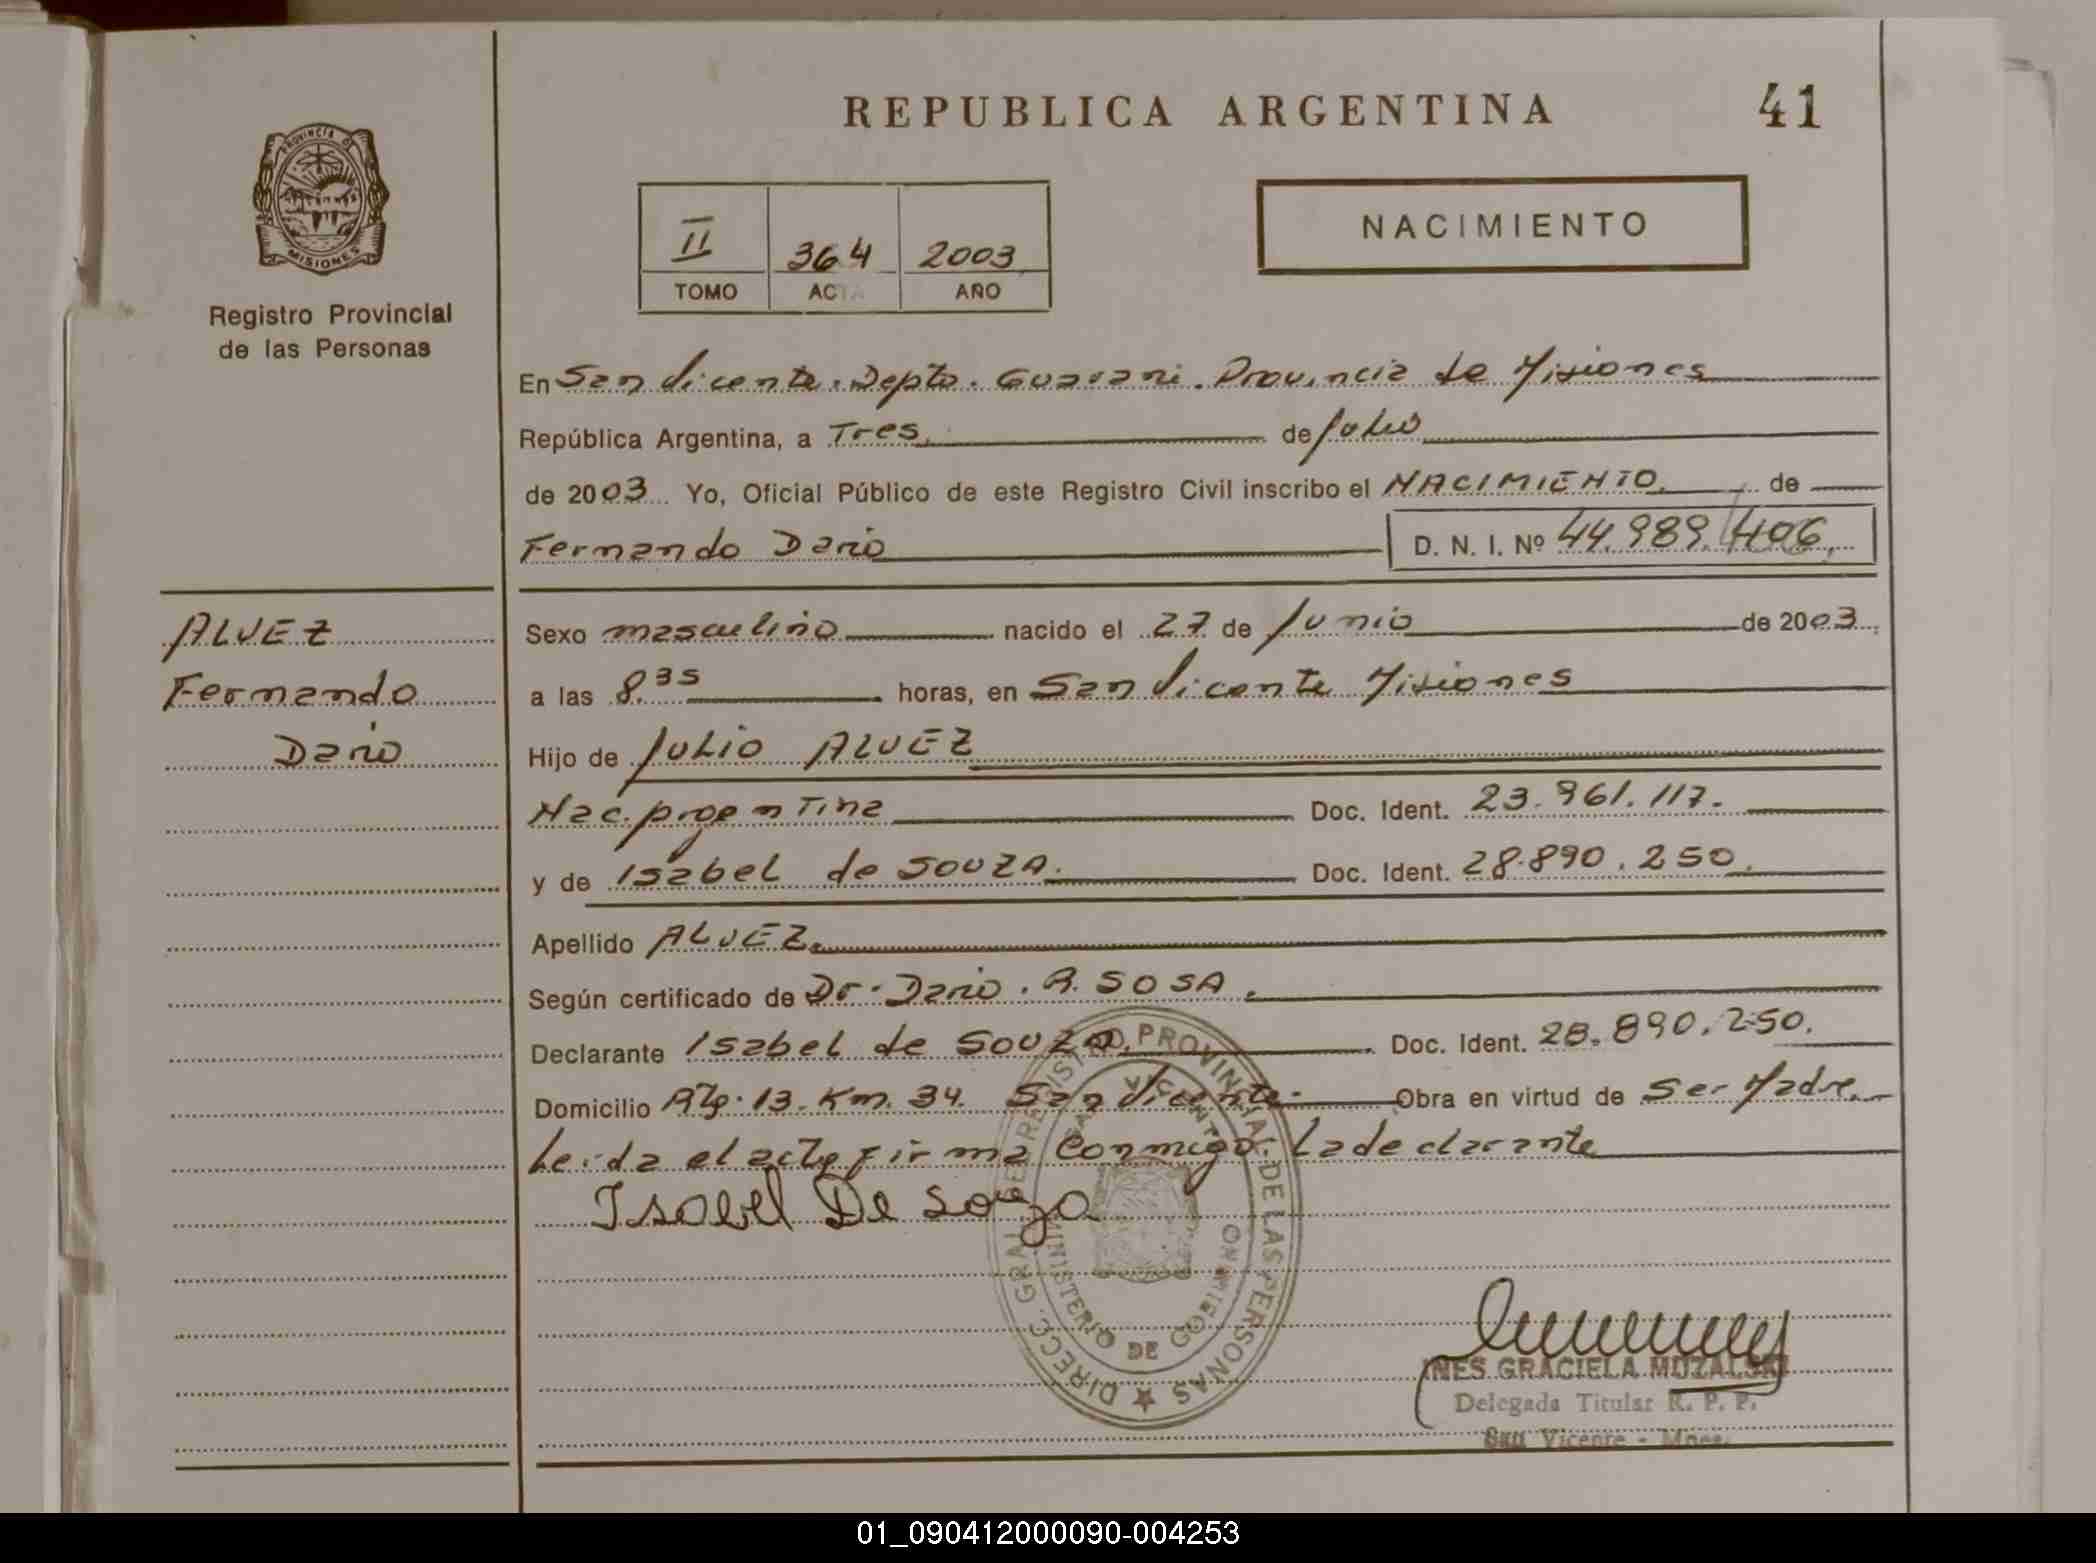 REPUBLICA ARGENTINA
41
PROVINCIA D
MISIONES
Registro Provincial
de las Personas
II 364 2003
TOMO ACTA AÑO
NACIMIENTO
En San Vicente. Depto. Guarani. Provincia de Misiones
República Argentina, a Tres, de Julio
de 2003 Yo, Oficial Público de este Registro Civil inscribo el NACIMIENTO. de
Fernando Dario D. N. I. Nº 44.989.406.
ALVEZ
Fernando
Dario
Sexo masculino nacido el 27 de Junio de 2003
a las 8.35 horas, en San Vicente Misiones
Hijo de Julio ALVEZ
Nac. Argentina Doc. Ident. 23.961.117.
y de Isabel de SOUZA. Doc. Ident. 28.890.250.
Apellido ALVEZ.
Según certificado de Dr. Dario. R. SOSA.
Declarante Isabel de SOUZA. Doc. Ident. 28.890.250.
Domicilio Rta. 13. Km. 34. San Vicente. Obra en virtud de Ser Madre.
Leida el acta firma conmigo. La declarante
Isabel De Souza
DIRECC. GRAL. DE REGISTRO PROVINCIAL DE LAS PERSONAS
VICENTE
MINISTERIO DE GOBIERNO
INES GRACIELA MOZALSKI
Delegada Titular R. P. P.
San Vicente - Mnes.
01_090412000090-004253